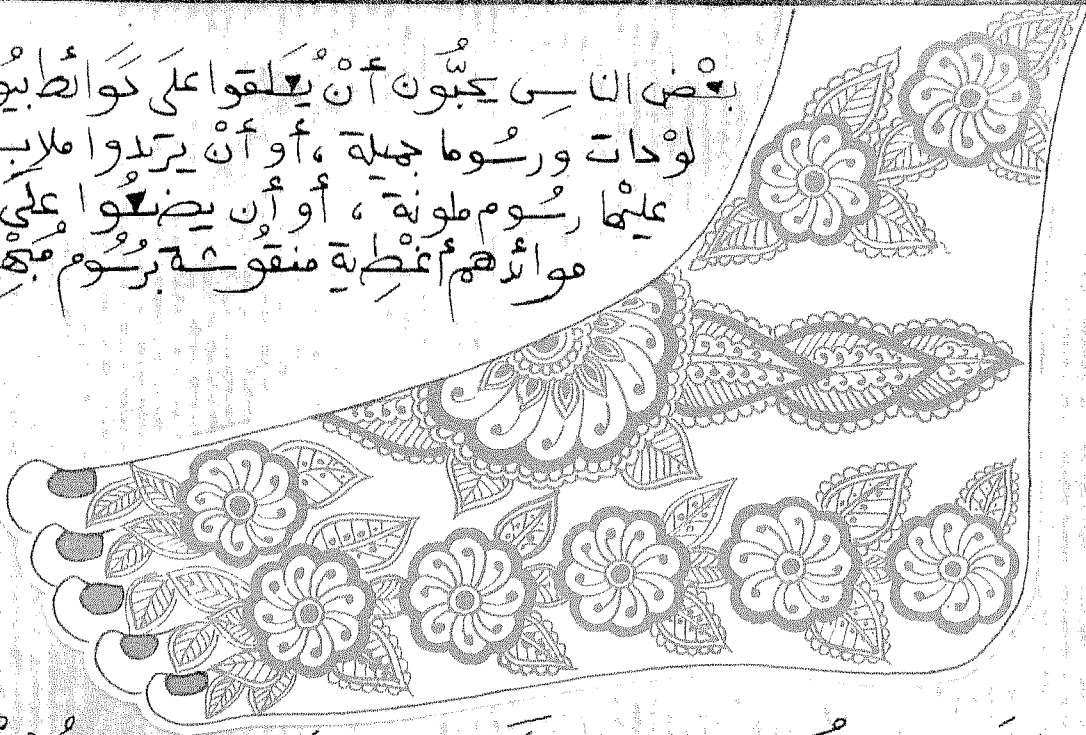 بعْض الناس يحبُّون أنْ يُعلقوا على حَوائط
لوْحات ورسُوما جميلة ، أو أنْ يرتدوا
عليْها رسُوم ملونة ، أو أن يضعُوا على
موائدهم أغْطِية منقوشة برسُوم